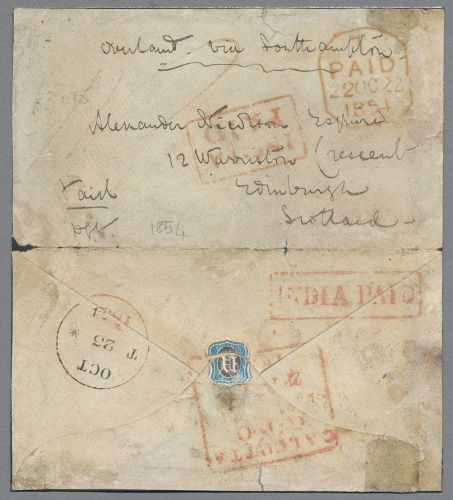 overland via Southampton
PAID
22 OC 22
1854
Alexander Nicolson Esquire
12 Warriston Crescent
Edinburgh
Scotland
Paid
1854
INDIA PAID
OCT
T 23
1854
CALCUTTA